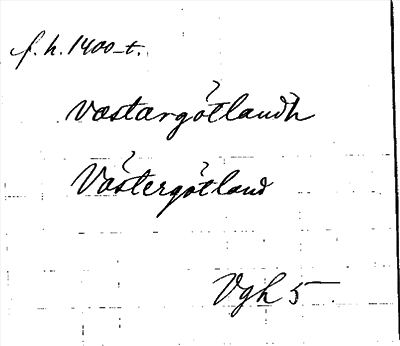 f. h. 1400-t.
væstargötlandh
Västergötland
Vgh 5